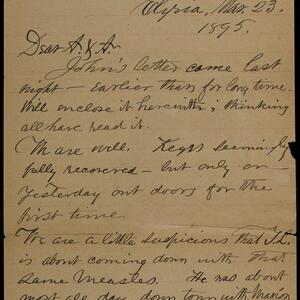 Elyria, Mar. 23.
1895.
Dear A. & A.
John's letter came last
night — earlier than for long time.
Will enclose it herewith; thinking
all have read it.
We are well. Keyes seemingly
fully recovered — but only on
yesterday out doors for the
first time.
We are a little suspicious that
is about coming down with that
same Measles. He was about
most all day down town with